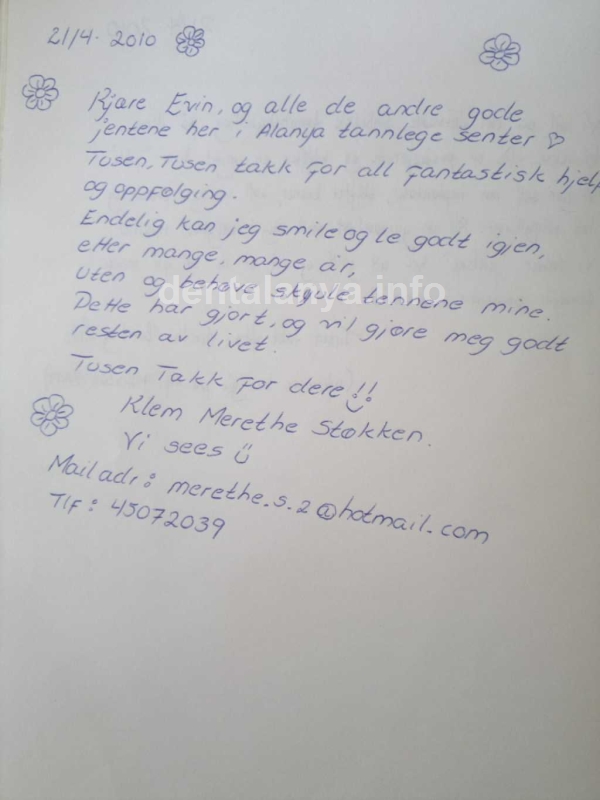 21/4. 2010
Kjære Evin, og alle de andre gode
jentene her i Alanya tannlege senter
Tusen, Tusen takk for all fantastisk hjelp
og oppfølging.
Endelig kan jeg smile og le godt igjen,
etter mange, mange år,
uten og behøve skjule tennene mine.
Dette har gjort, og vil gjøre meg godt
resten av livet.
Tusen Takk for dere!!
Klem Merethe Støkken.
Vi sees
Mailadr: merethe.s.2@hotmail.com
Tlf: 45072039
dentalanya.info